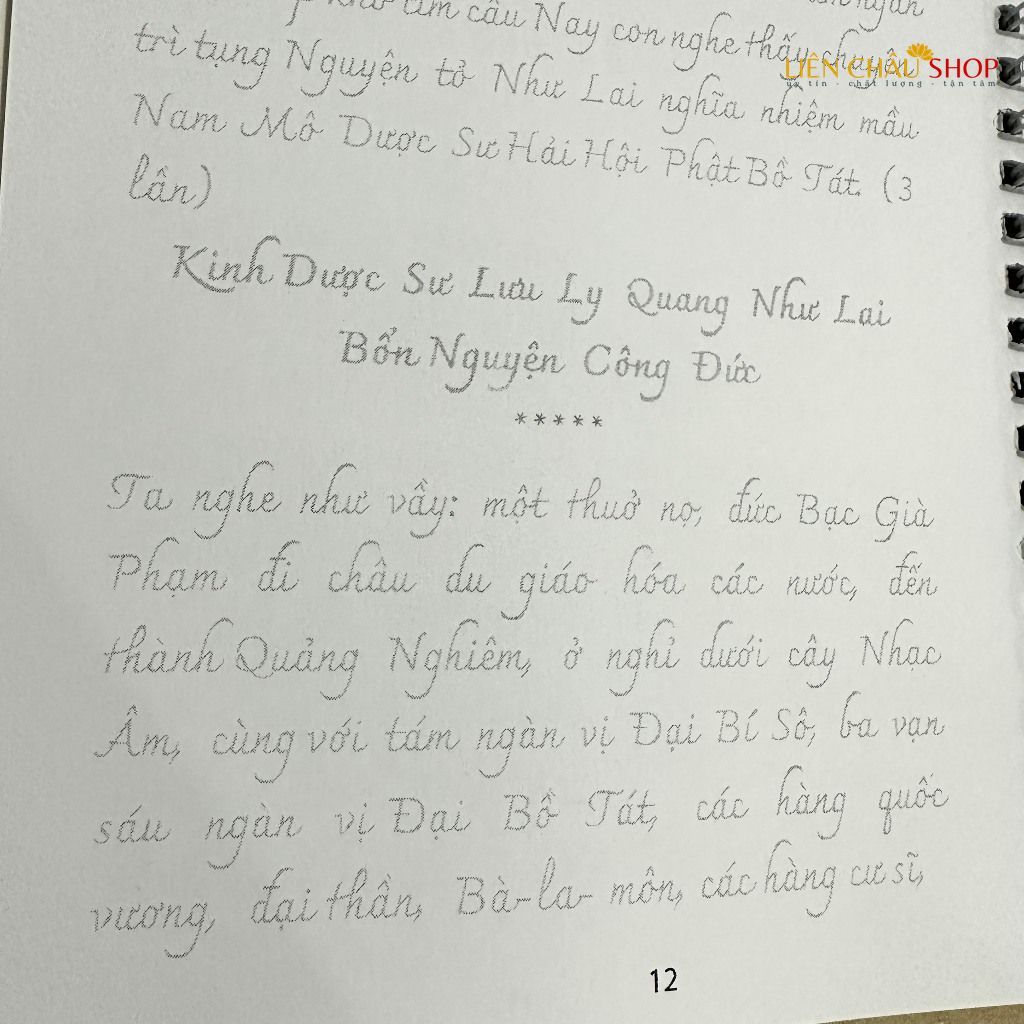 khó tìm cầu Nay con nghe thấy chuyên
trì tụng Nguyện tỏ Như Lai nghĩa nhiệm mầu
Nam Mô Dược Sư Hải Hội Phật Bồ Tát. (3
lần)
Kinh Dược Sư Lưu Ly Quang Như Lai
Bổn Nguyện Công Đức
*****
Ta nghe như vầy: một thuở nọ, đức Bạc Già
Phạm đi châu du giáo hóa các nước, đến
thành Quảng Nghiêm, ở nghỉ dưới cây Nhạc
Âm, cùng với tám ngàn vị Đại Bí Sô, ba vạn
sáu ngàn vị Đại Bồ Tát, các hàng quốc
vương, đại thần, Bà-la-môn, các hàng cư sĩ,
12
LIÊN CHÂU SHOP
uy tín - chất lượng - tận tâm